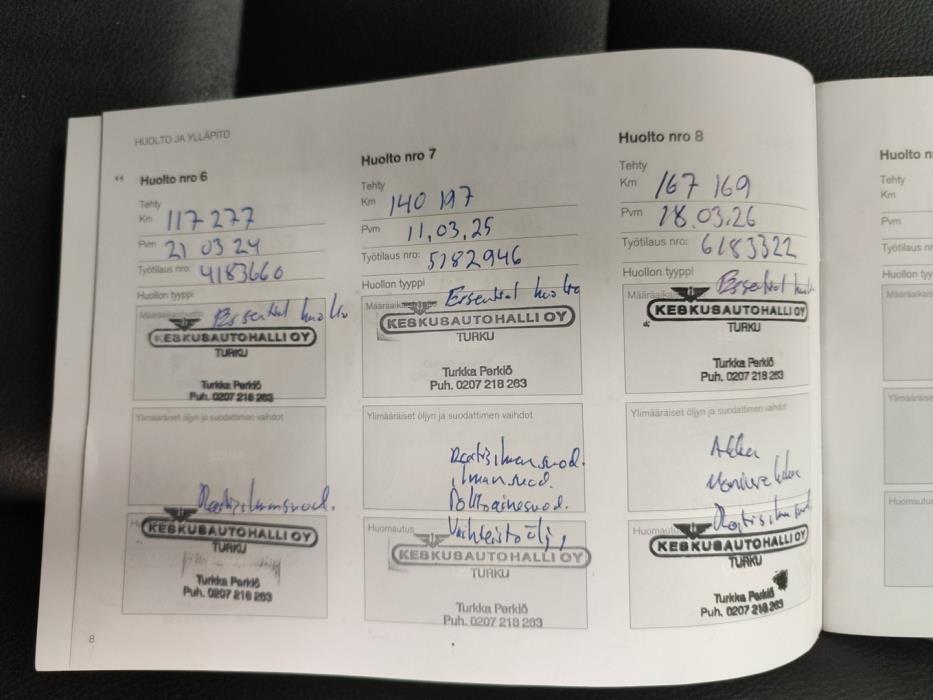 HUOLTO JA YLLÄPITO
Huolto nro 6
Tehty
Km 117 277
Pvm 21 03 24
Työtilaus nro: 4183660
Huollon tyyppi
Essential huolto
KESKUSAUTOHALLI OY
TURKU
Turkka Perkiö
Puh. 0207 218 263
Ylimääräiset öljyn ja suodattimen vaihdot
Raitisilmansuod.
KESKUSAUTOHALLI OY
TURKU
Turkka Perkiö
Puh. 0207 218 263
8
Huolto nro 7
Tehty
Km 140 197
Pvm 11.03.25
Työtilaus nro: 5182946
Huollon tyyppi
Essential huolto
KESKUSAUTOHALLI OY
TURKU
Turkka Perkiö
Puh. 0207 218 263
Ylimääräiset öljyn ja suodattimen vaihdot
Raitisilmansuod.
ilmansuod.
Polttoainesuod.
Vaihteistoöljy
Huomautus
KESKUSAUTOHALLI OY
TURKU
Turkka Perkiö
Puh. 0207 218 263
Huolto nro 8
Tehty
Km 167 169
Pvm 18.03.26
Työtilaus nro: 6183322
Huollon tyyppi
Essential
KESKUSAUTOHALLI OY
TURKU
Turkka Perkiö
Puh. 0207 218 263
Ylimääräiset öljyn ja suodattimen vaihdot
KESKUSAUTOHALLI OY
TURKU
Turkka Perkiö
Puh. 0207 218 263
Tehty
Km
Pvm